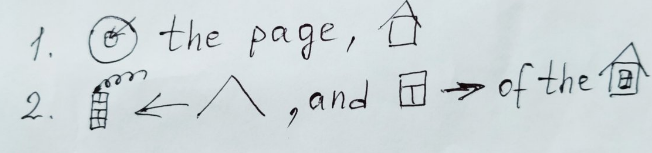 1. the page,
2. , and of the